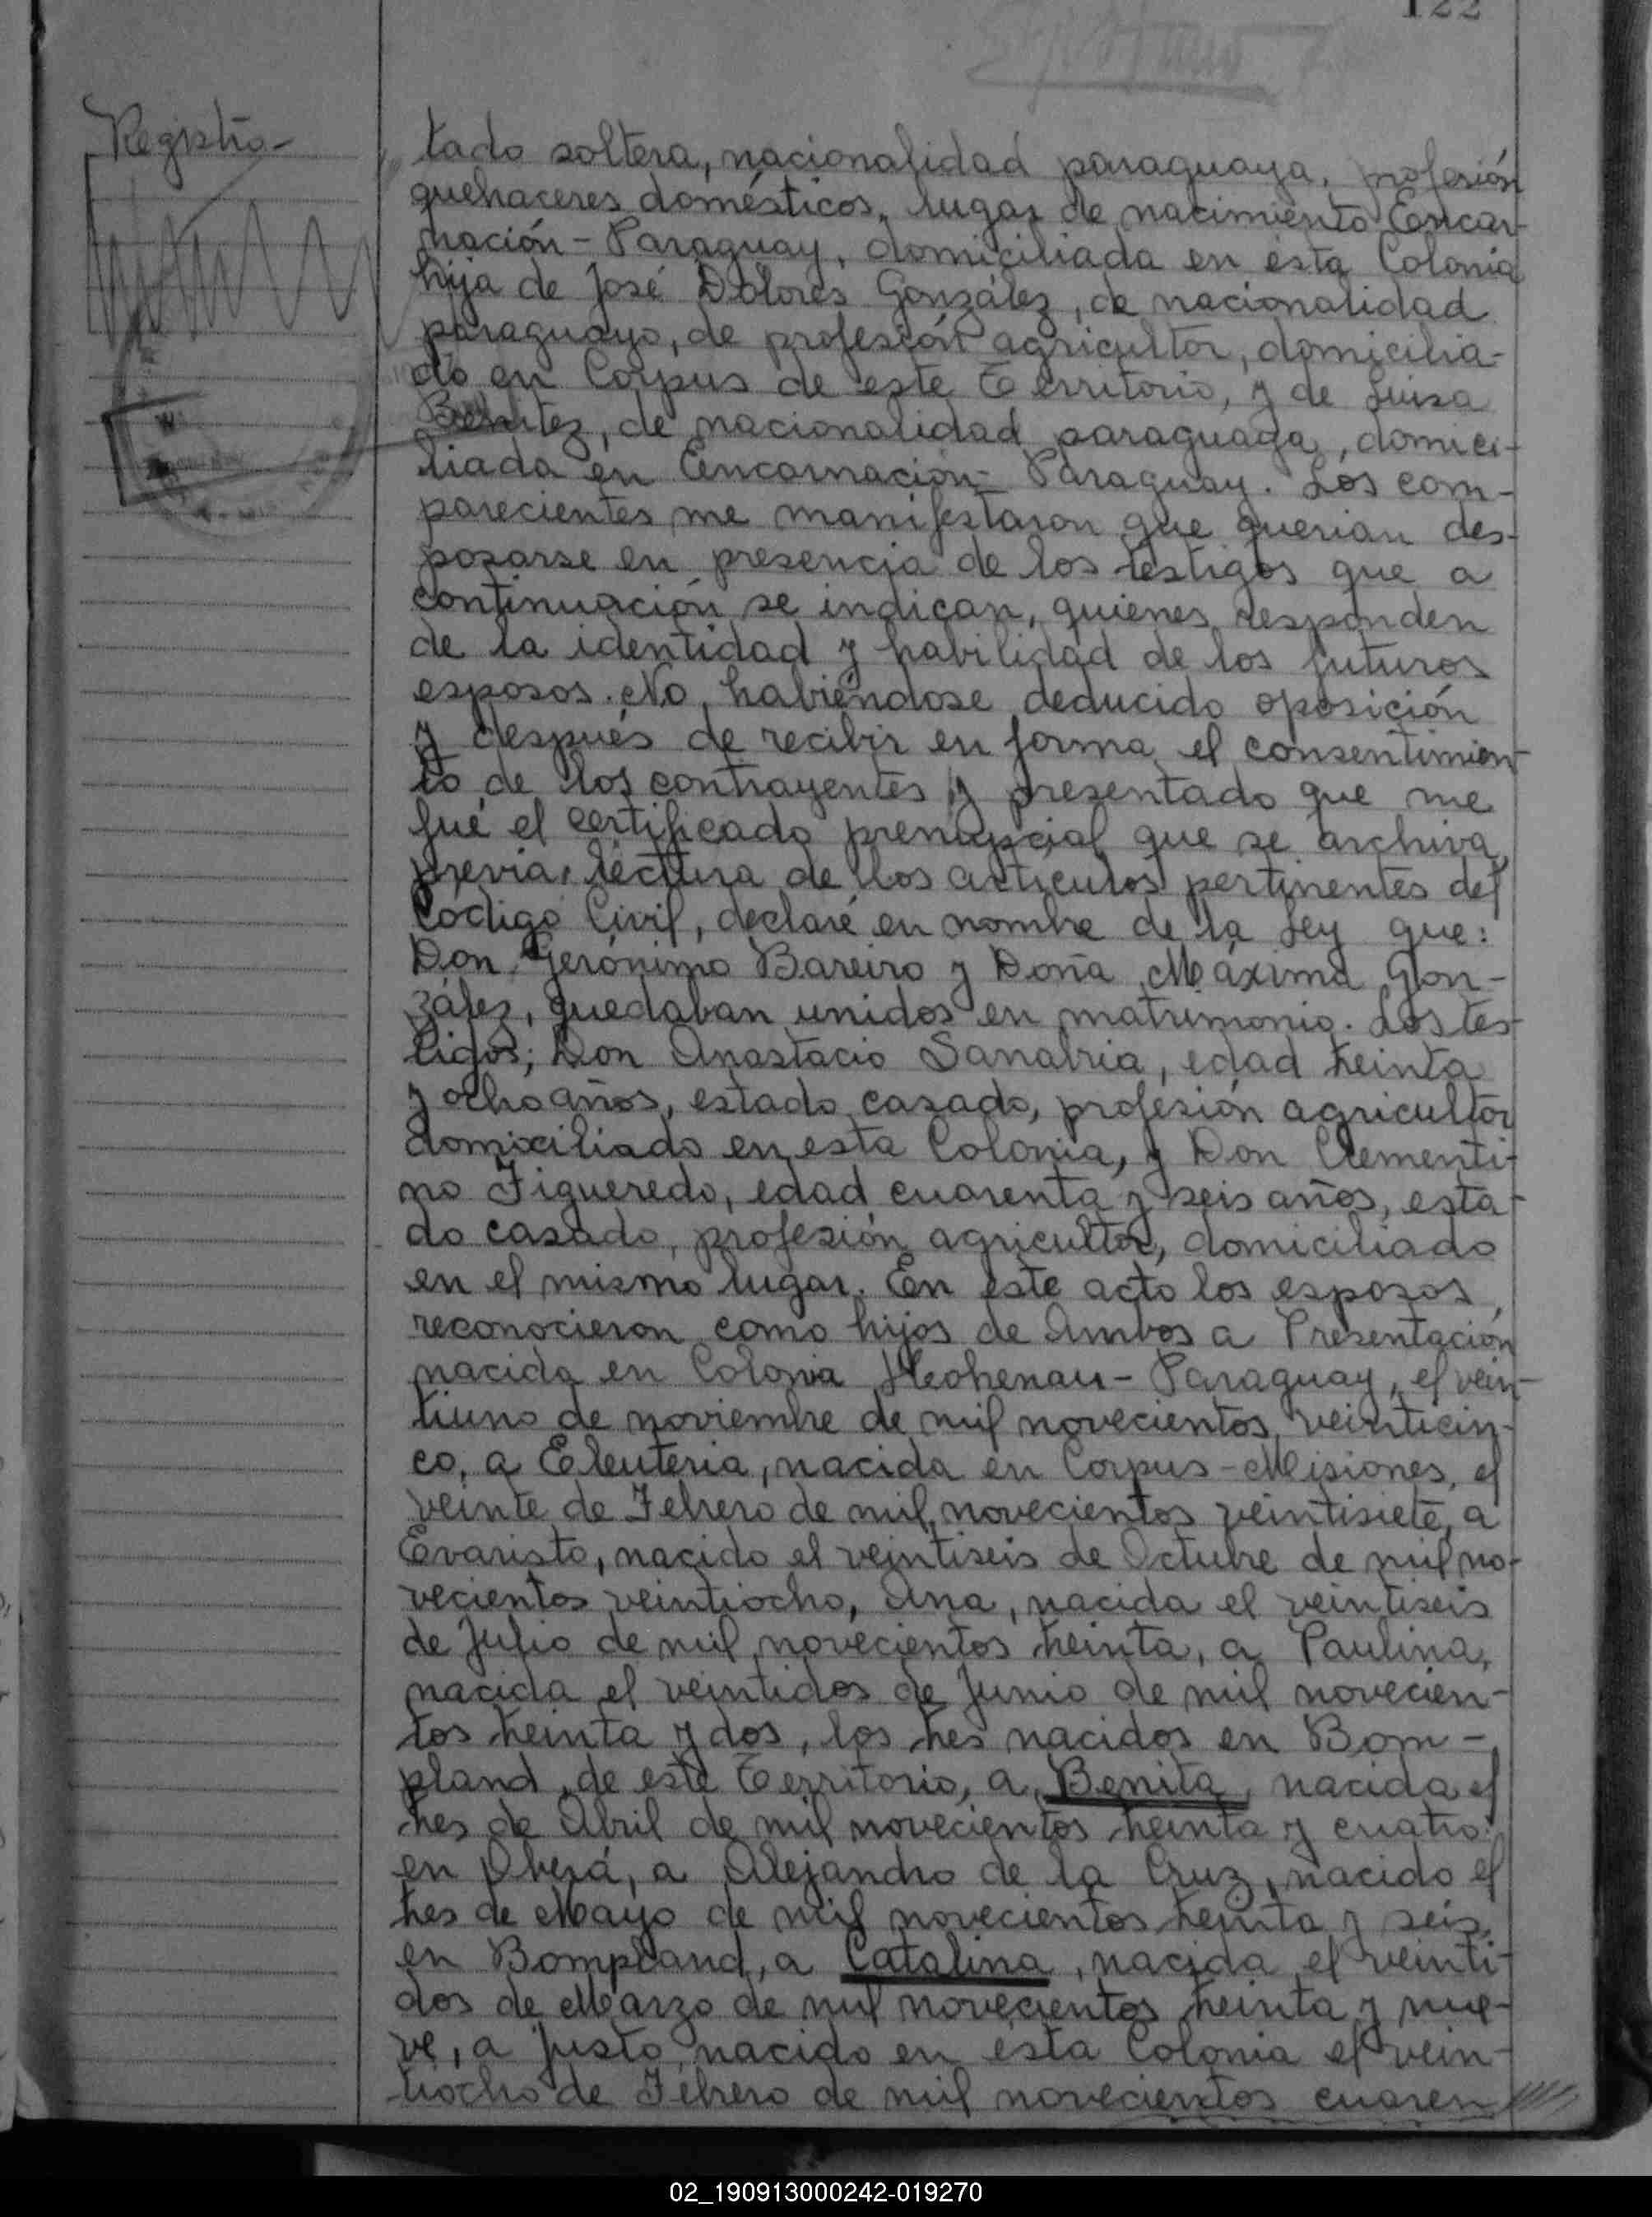 122
Registro-
tado soltera, nacionalidad paraguaya, profesión
quehaceres domésticos, lugar de nacimiento Encar-
nación - Paraguay, domiciliada en ésta Colonia
hija de José Dolores González, de nacionalidad
paraguayo, de profesión agricultor, domicilia-
do en Corpus de este Territorio, y de Luisa
Benitez, de nacionalidad paraguaya, domici-
liada en Encarnación - Paraguay. Los com-
parecientes me manifestaron que querian des-
posarse en presencia de los testigos que a
continuación se indican, quienes responden
de la identidad y habilidad de los futuros
esposos. No habiéndose deducido oposición
y después de recibir en forma el consentimien-
to de los contrayentes y presentado que me
fué el certificado prenupcial que se archiva,
previa lectura de los articulos pertinentes del
Código Civil, declaré en nombre de la Ley que:
Don Gerónimo Bareiro y Doña Máxima Gon-
zález, quedaban unidos en matrimonio. Los tes-
tigos; Don Anastacio Sanabria, edad treinta
y ocho años, estado casado, profesión agricultor
domiciliado en esta Colonia, y Don Clementi-
no Figueredo, edad cuarenta y seis años, esta-
do casado, profesión agricultor, domiciliado
en el mismo lugar. En este acto los esposos
reconocieron como hijos de ambos a Presentación
nacida en Colonia Hohenau - Paraguay, el vein-
tiuno de noviembre de mil novecientos veinticin-
co, a Eleuteria, nacida en Corpus - Misiones, el
veinte de Febrero de mil novecientos veintisiete, a
Evaristo, nacido el veintiseis de Octubre de mil no-
vecientos veintiocho, Ana, nacida el veintiseis
de Julio de mil novecientos treinta, a Paulina,
nacida el veintidos de Junio de mil novecien-
tos treinta y dos, los tres nacidos en Bom-
pland, de este Territorio, a Benita, nacida el
tres de Abril de mil novecientos treinta y cuatro
en Oberá, a Alejandro de la Cruz, nacido el
tres de Mayo de mil novecientos treinta y seis,
en Bompland, a Catalina, nacida el veinti-
dos de Marzo de mil novecientos treinta y nue-
ve, a Justo, nacido en ésta Colonia el vein-
tiocho de Febrero de mil novecientos cuaren
02_190913000242-019270